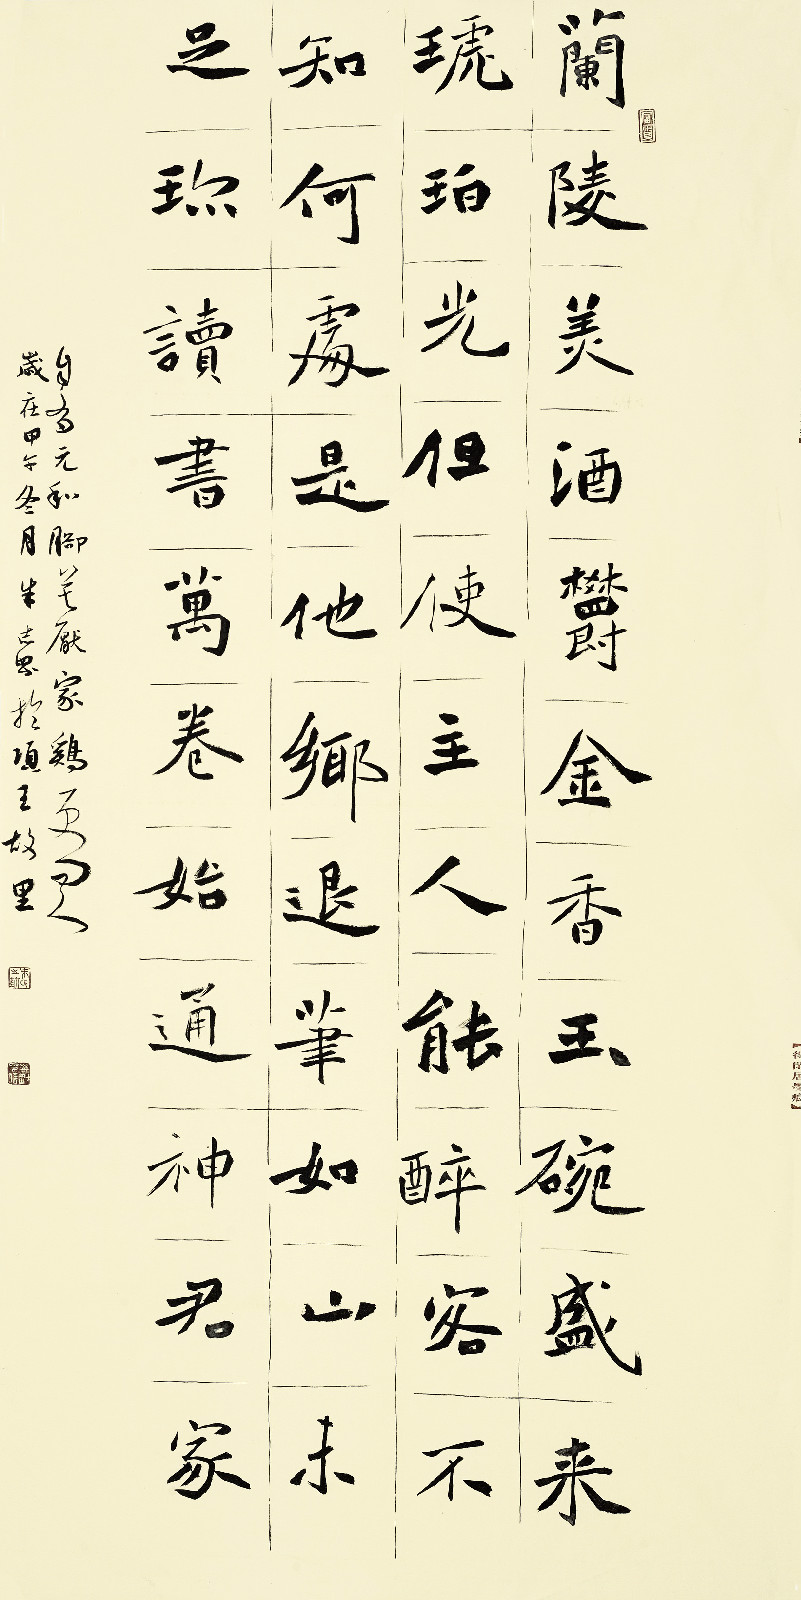 蘭陵美酒鬱金香玉碗盛来
琥珀光但使主人能醉客不
知何處是他鄉退筆如山未
足珎讀書萬卷始通神君家
自有元和腳莫厭家鷄更問人
歲在甲午冬月朱志於項王故里